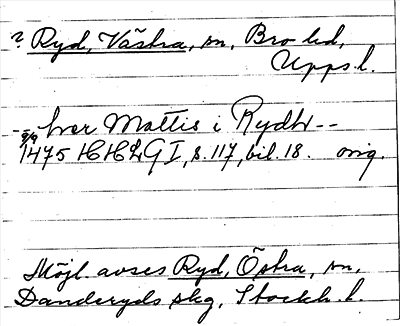 ? Ryd, Västra, sn, Bro hd,
Upps.l.
-- hver Mattis i Rydh --
9/9
1475 HH2GI, s.117, bil.18. orig.
Möjl. avses Ryd, Östra, sn,
Danderyds skg, Stockh. l.